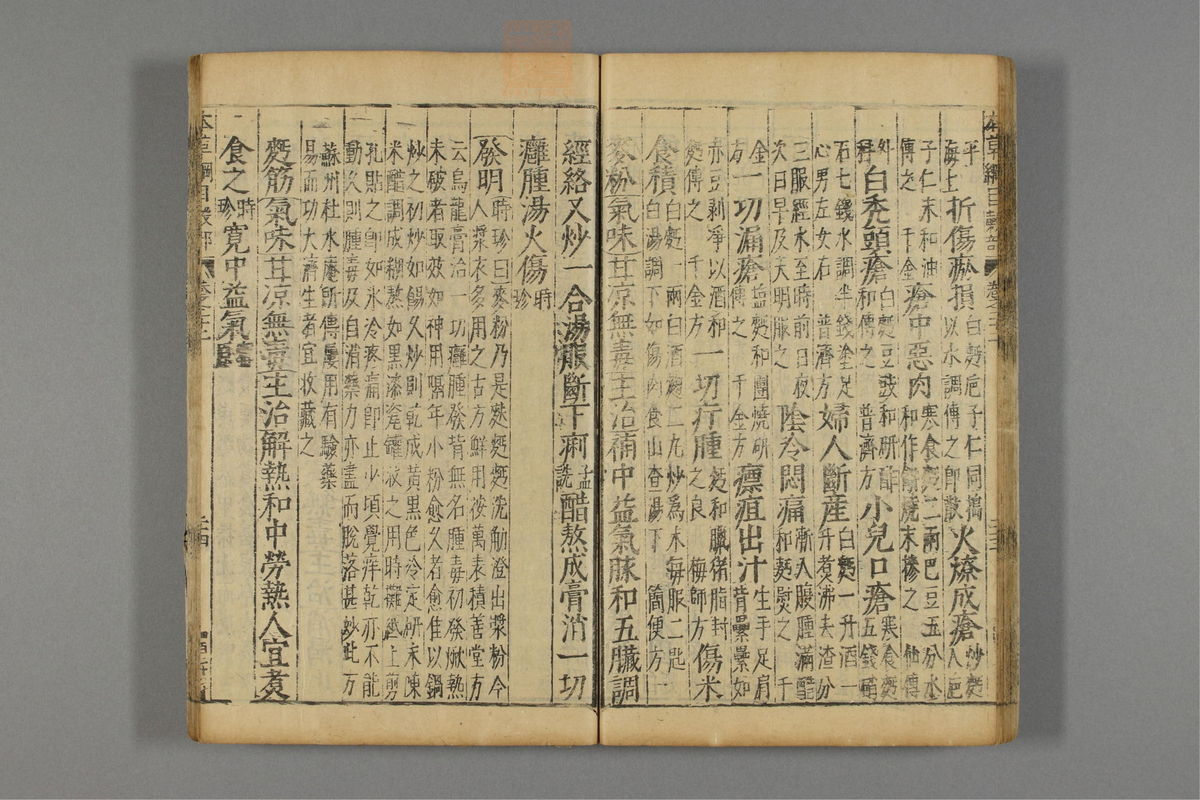 平海上折傷瘀損白麪梔子仁同搗以水調傅之即散火燎成瘡炒麪入梔
子仁末和油傅之千金瘡中惡肉寒食麪二兩巴豆五分水和作餅燒末摻之仙傳
外科白禿頭瘡白麪豆豉和研酢和傅之普濟方小兒口瘡寒食麪五錢硝
石七錢水調半錢塗足心男左女右普濟方婦人斷産白麪一升酒一升煮沸去渣分
三服經水至時前日夜次日早及天明服之陰冷悶痛漸入腹腫滿醋和麪熨之千
金方一切漏瘡鹽麪和團燒研傅之千金方瘭疽出汁生手足肩背纍纍如
赤豆剥淨以酒和麪傅之千金方一切疔腫麪和臘猪脂封之良梅師方傷米
食積白麪一兩白酒麯二丸炒爲末每服二匙白湯調下如傷肉食山查湯下簡便方
麥粉氣味甘凉無毒主治補中益氣脉和五臟調
經絡又炒一合湯服斷下痢孟詵醋熬成膏消一切
癰腫湯火傷時珍
發明時珍曰麥粉乃是麩麪麪洗觔澄出漿粉今人漿衣多用之古方鮮用後萬表積善堂方
云烏龍膏治一切癰腫發背無名腫毒初發焮熱未破者取效如神用隔年小粉愈久者愈佳以鍋
炒之初炒如餳久炒則乾成黄黑色冷定研末陳米醋調成糊熬如黑漆瓷罐收之用時攤紙上剪
孔貼之即如氷冷疼痛即止少頃覺痒乾亦不能動久則腫毒及自消藥力亦盡而脫落甚妙此方
蘇州杜水庵所傳屢用有驗藥易而功大濟生者宜收藏之
麪筋氣味甘凉無毒主治解熱和中勞熱人宜煮
食之時珍寛中益氣
本草綱目穀部
本草綱目穀部